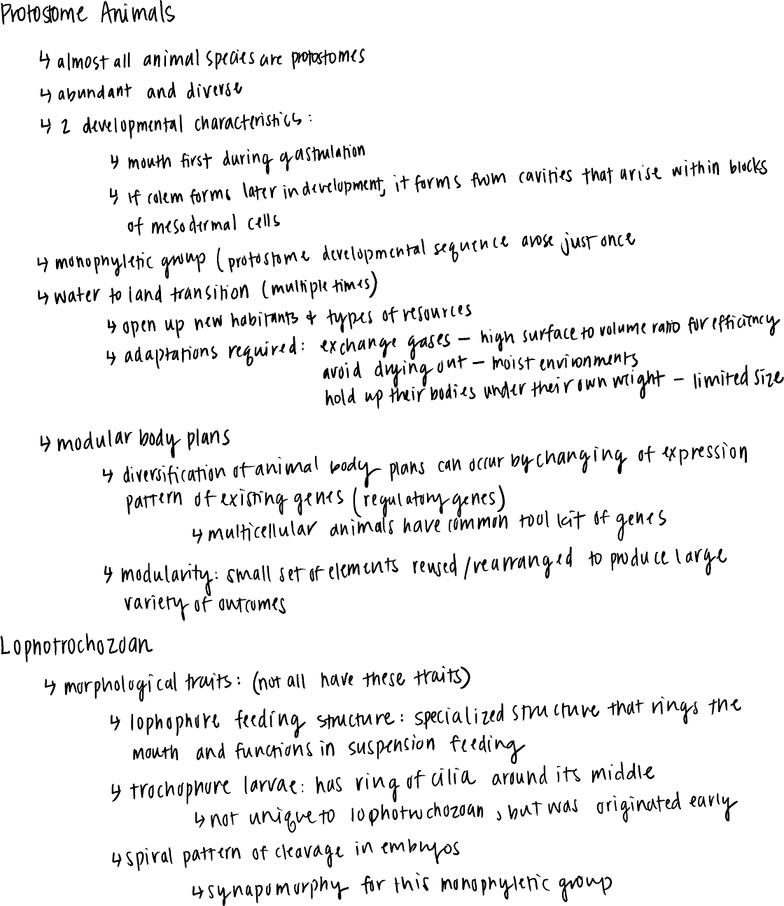 Protostome Animals
↳ almost all animal species are protostomes
↳ abundant and diverse
↳ 2 developmental characteristics:
↳ mouth first during gastrulation
↳ if colem forms later in development, it forms from cavities that arise within blocks
of mesodermal cells
↳ monophyletic group (protostome developmental sequence arose just once
↳ water to land transition (multiple times)
↳ open up new habitants & types of resources
↳ adaptations required: exchange gases – high surface to volume ratio for efficiency
avoid drying out – moist environments
hold up their bodies under their own wright – limited size
↳ modular body plans
↳ diversification of animal body plans can occur by changing of expression
pattern of existing genes (regulatory genes)
↳ multicellular animals have common tool kit of genes
↳ modularity: small set of elements reused/rearranged to produce large
variety of outcomes
Lophotrochozoan
↳ morphological traits: (not all have these traits)
↳ lophophore feeding structure: specialized structure that rings the
mouth and functions in suspension feeding
↳ trochophore larvae: has ring of cilia around its middle
↳ not unique to lophotrochozoan, but was originated early
↳ spiral pattern of cleavage in embryos
↳ synapomorphy for this monophyletic group